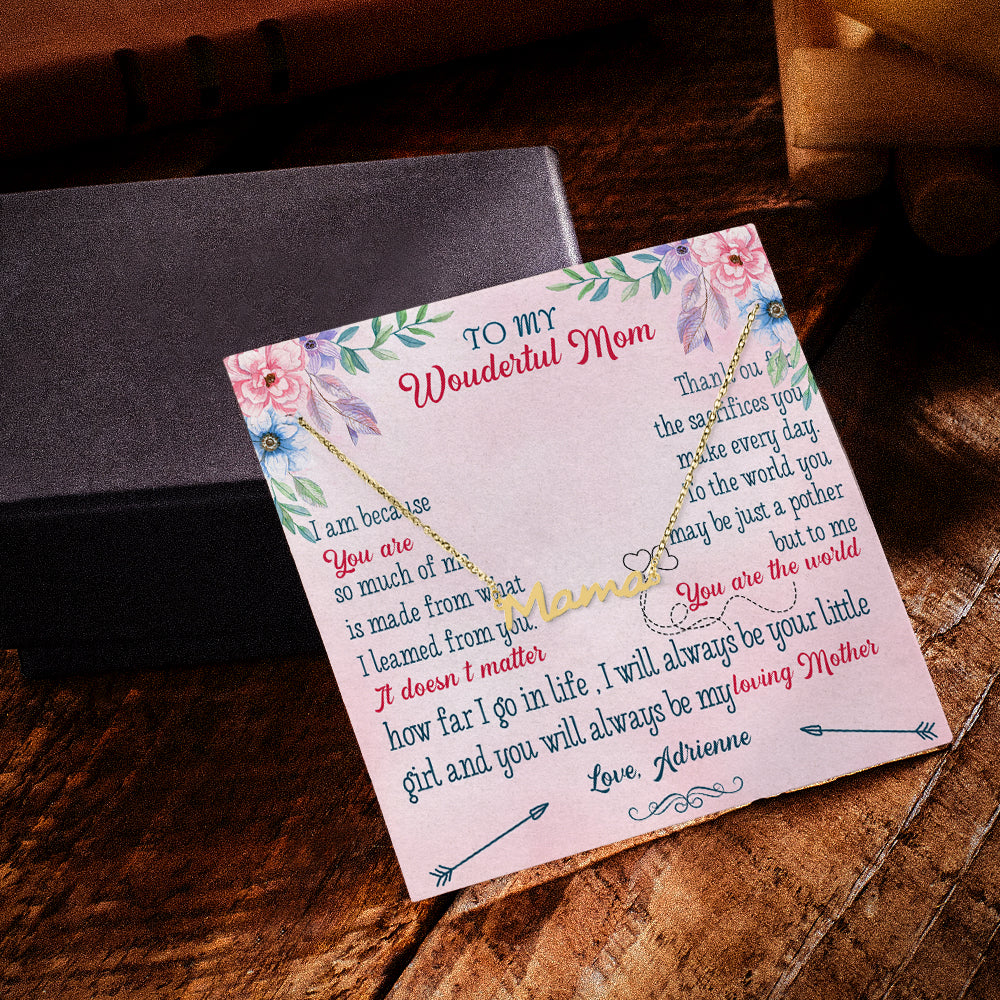 TO MY
Wouderful Mom
I am because
You are
so much of me
is made from what
I leamed from you.
It doesn t matter
Thank ou for
the sacrifices you
make every day.
To the world you
may be just a pother
but to me
You are the world
how far I go in life , I will always be your little
girl and you will always be my loving Mother
Love, Adrienne
Mama